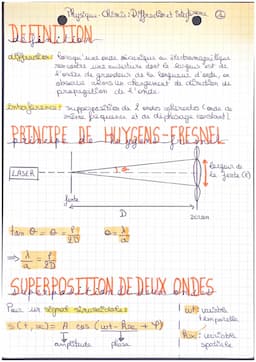 Physique-Chimie : Diffraction et Interférence ①
DEFINITION
diffraction : lorsqu'une onde mécanique ou électromagnétique
rencontre une ouverture dont la largeur est de
l'ordre de grandeur de la longueur d'onde, on
observe alors un changement de direction de
propagation de l'onde.
interférence : superposition de 2 ondes cohérentes (onde de
même fréquence et de déphasage constant)
PRINCIPE DE HUYGENS-FRESNEL
LASER
θ
largeur de
la fente (ℓ)
fente
D
écran
tan θ ≈ θ = ℓ/2D
θ = λ/a
⇒ λ/a = ℓ/2D
SUPERPOSITION DE DEUX ONDES
Pour un signal sinusoïdal :
s(t, x) = A cos (ωt - kx + φ)
amplitude
phase
ωt : variable
temporelle
kx : variable
spatiale